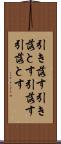 引き落す引き
落とす引落す
引落とす